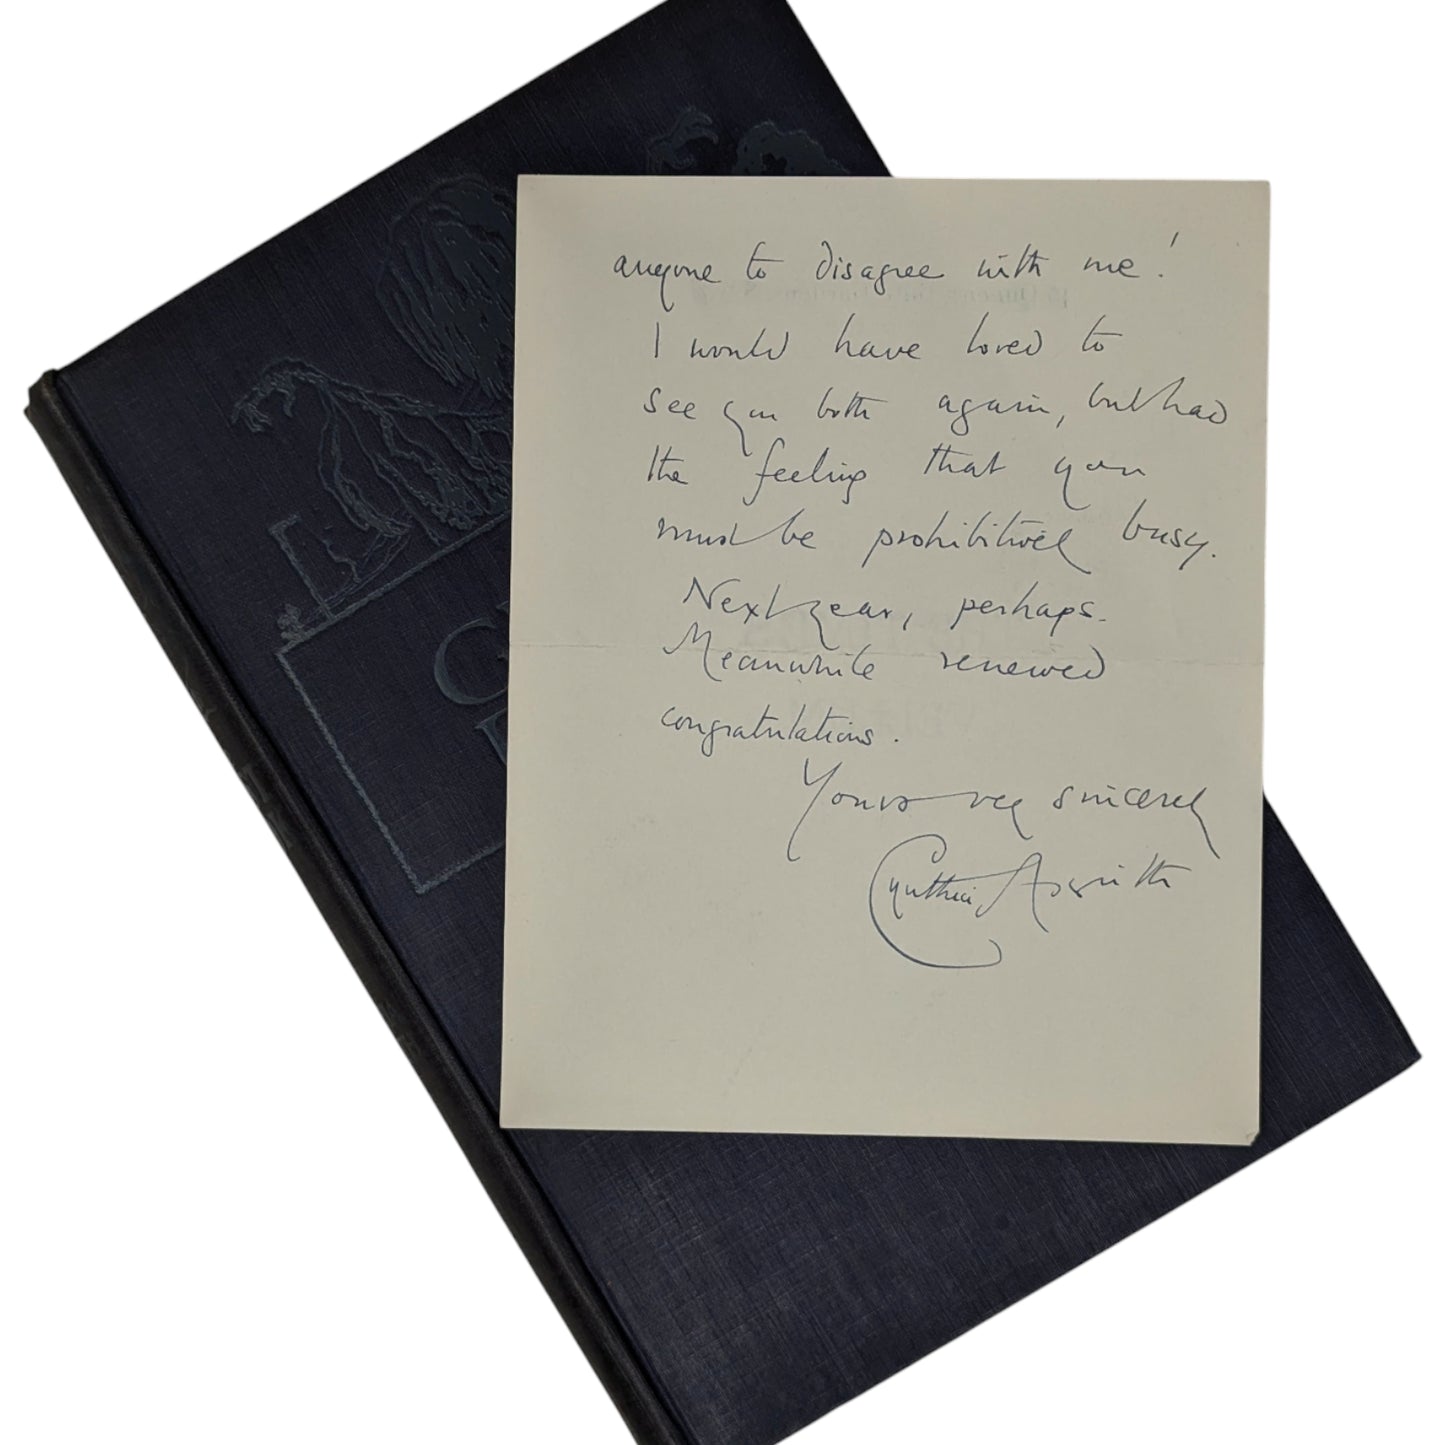 anyone to disagree with me!
I would have loved to
see you both again, but had
the feeling that you
must be prohibitively busy.
Next year, perhaps.
Meanwhile renewed
congratulations.
Yours very sincerely
Cynthia Asquith
G